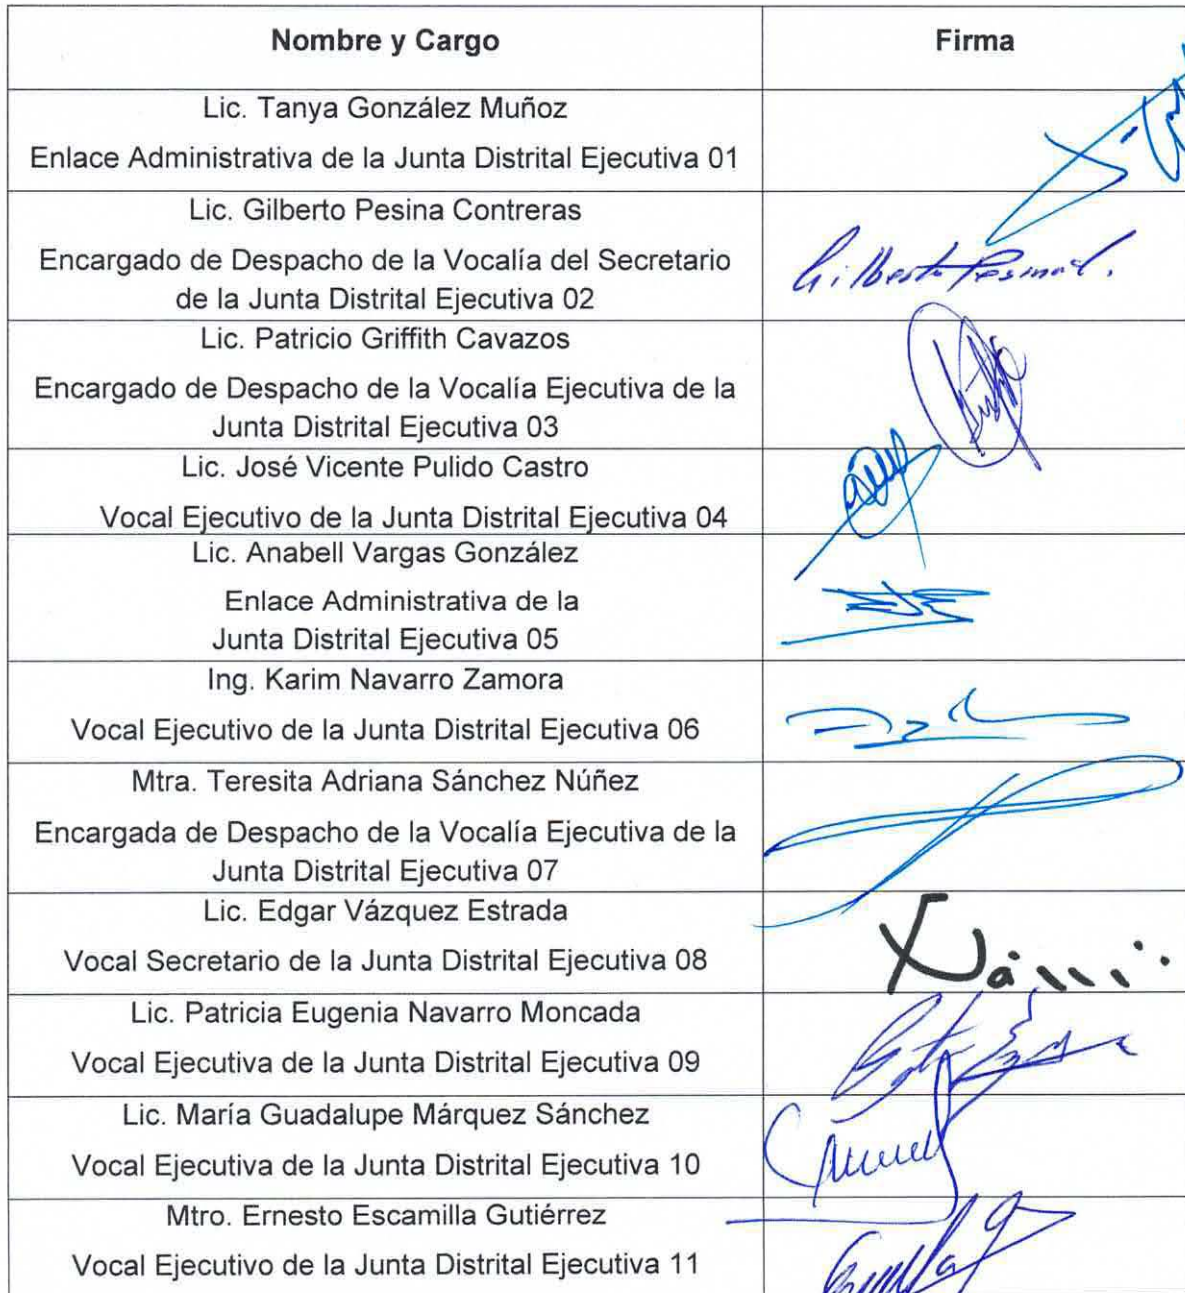 Nombre y Cargo
Firma
Lic. Tanya González Muñoz
Enlace Administrativa de la Junta Distrital Ejecutiva 01
Lic. Gilberto Pesina Contreras
Encargado de Despacho de la Vocalía del Secretario
de la Junta Distrital Ejecutiva 02
Gilberto Pesina C.
Lic. Patricio Griffith Cavazos
Encargado de Despacho de la Vocalía Ejecutiva de la
Junta Distrital Ejecutiva 03
Lic. José Vicente Pulido Castro
Vocal Ejecutivo de la Junta Distrital Ejecutiva 04
Lic. Anabell Vargas González
Enlace Administrativa de la
Junta Distrital Ejecutiva 05
Ing. Karim Navarro Zamora
Vocal Ejecutivo de la Junta Distrital Ejecutiva 06
Mtra. Teresita Adriana Sánchez Núñez
Encargada de Despacho de la Vocalía Ejecutiva de la
Junta Distrital Ejecutiva 07
Lic. Edgar Vázquez Estrada
Vocal Secretario de la Junta Distrital Ejecutiva 08
Lic. Patricia Eugenia Navarro Moncada
Vocal Ejecutiva de la Junta Distrital Ejecutiva 09
Lic. María Guadalupe Márquez Sánchez
Vocal Ejecutiva de la Junta Distrital Ejecutiva 10
Mtro. Ernesto Escamilla Gutiérrez
Vocal Ejecutivo de la Junta Distrital Ejecutiva 11